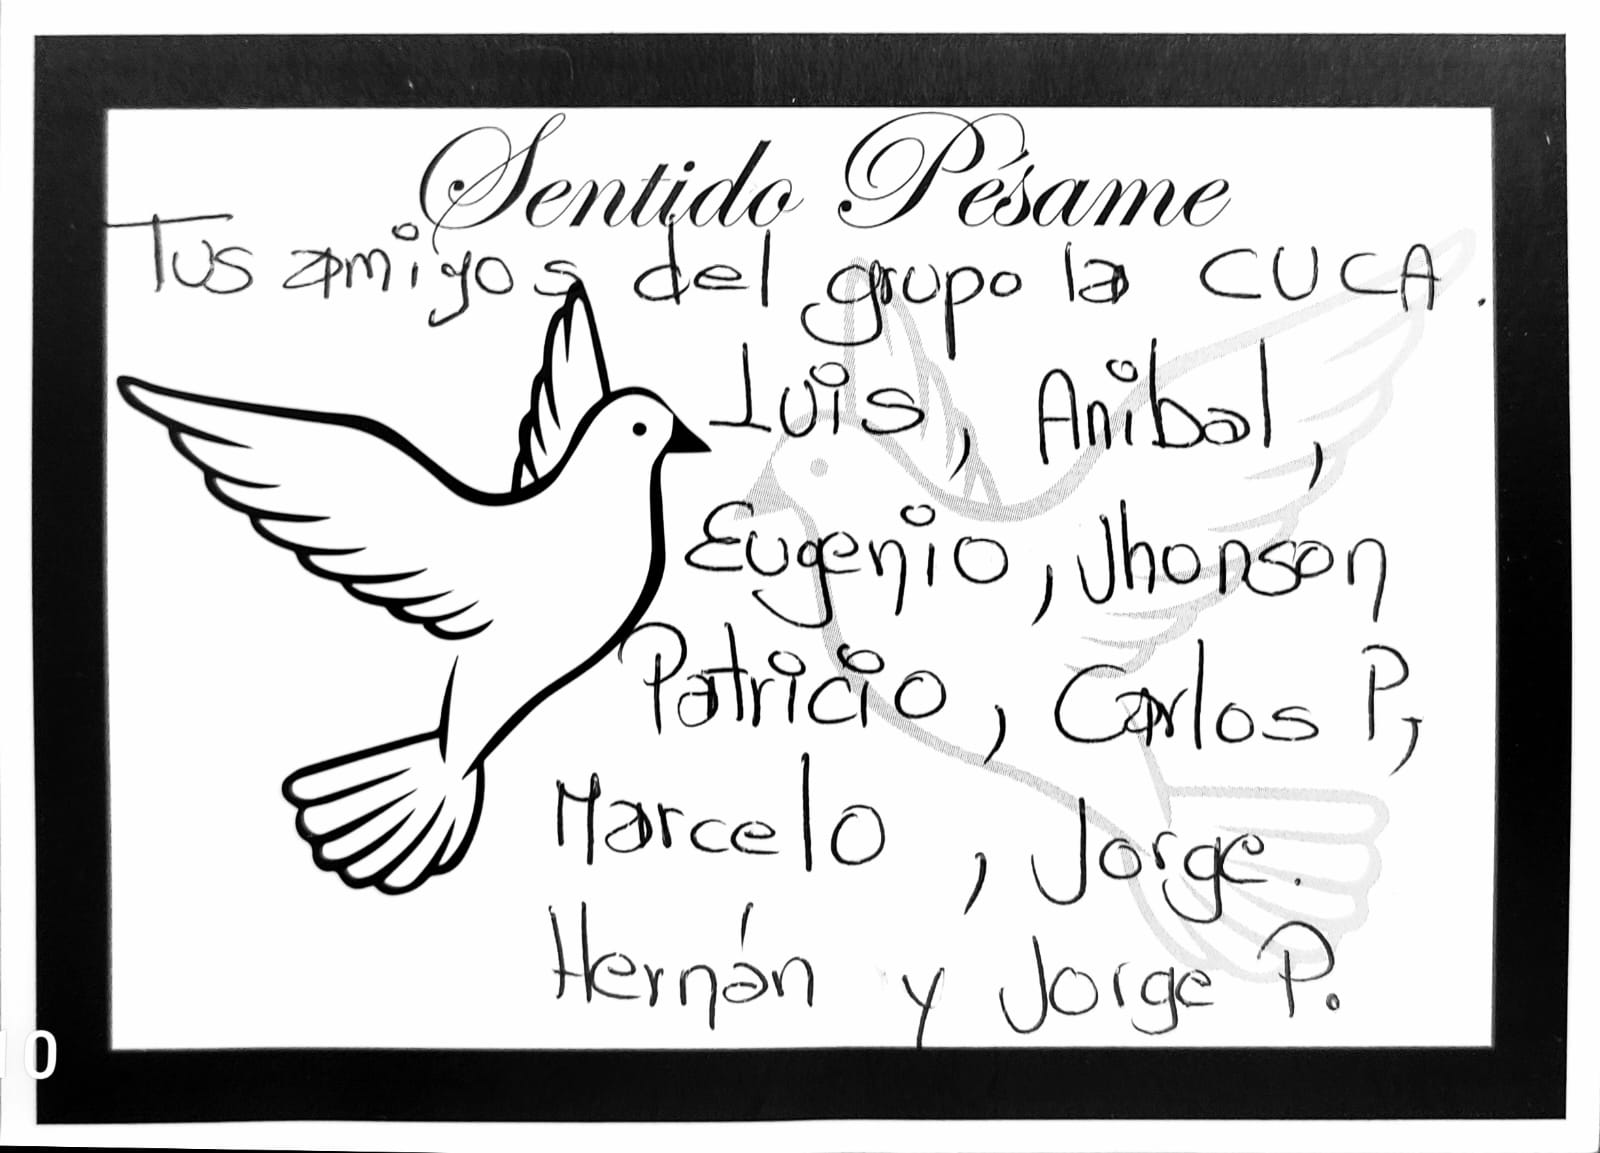 Sentido Pésame
Tus amigos del grupo la CUCA.
Luis, Anibal,
Eugenio, Jhonson
Patricio, Carlos P,
Marcelo, Jorge.
Hernán y Jorge P.
10